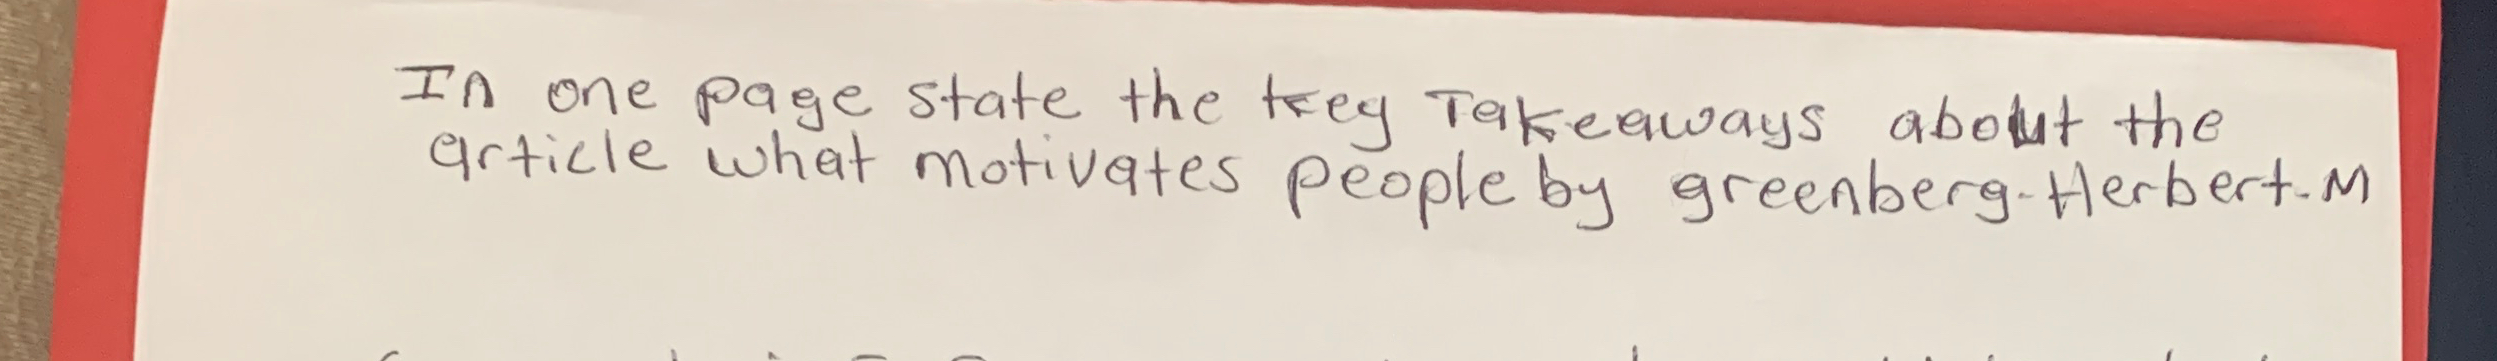 In one page state the key Takeaways about the
article what motivates people by greenberg-Herbert.M